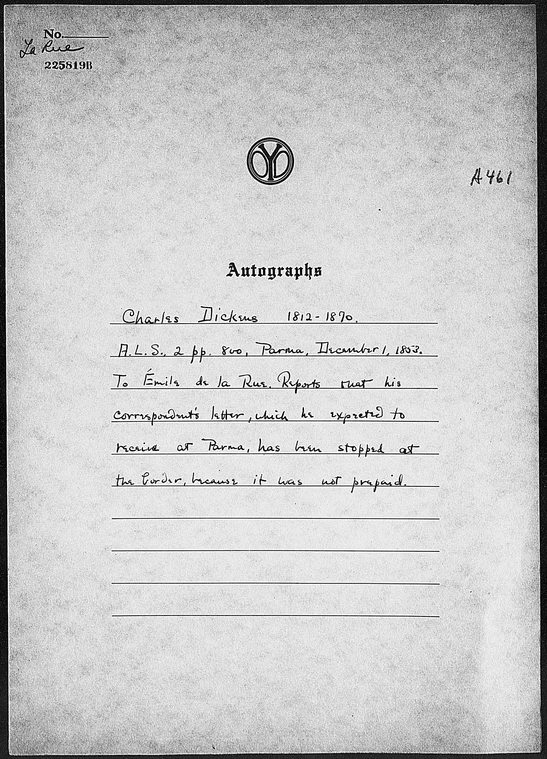 No.
La Rue
225819B
OYO
A461
Autographs
Charles Dickens 1812-1870.
A.L.S., 2 pp. 8vo, Parma, December 1, 1853.
To Émile de la Rue. Reports that his
correspondent's letter, which he expected to
receive at Parma, has been stopped at
the border, because it was not prepaid.